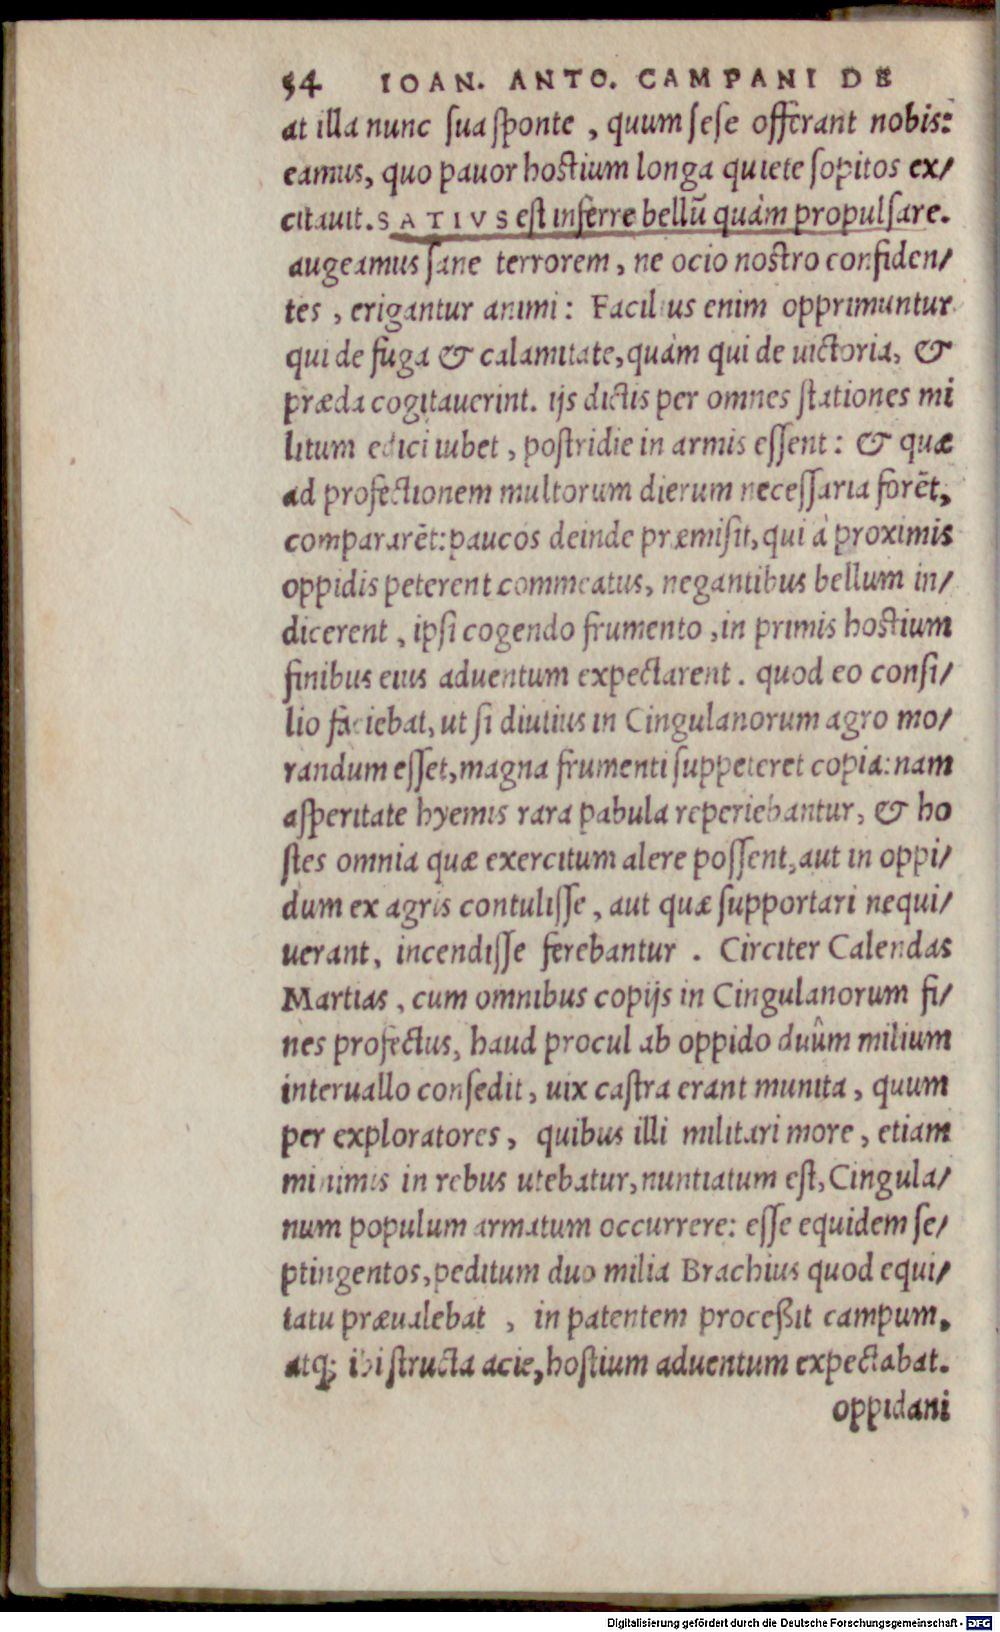 54 IOAN. ANTO. CAMPANI DE
at illa nunc sua sponte, quum sese offerant nobis:
eamus, quo pauor hostium longa quiete sopitos ex/
citauit. SATIVS est inferre bellū quàm propulsare.
augeamus sane terrorem, ne ocio nostro confiden/
tes, erigantur animi: Facilius enim opprimuntur
qui de fuga & calamitate, quàm qui de uictoria, &
præda cogitauerint. ijs dictis per omnes stationes mi
litum edici iubet, postridie in armis essent: & quæ
ad profectionem multorum dierum necessaria forēt,
compararēt: paucos deinde præmisit, qui à proximis
oppidis peterent commeatus, negantibus bellum in/
dicerent, ipsi cogendo frumento, in primis hostium
finibus eius aduentum expectarent. quod eo consi/
lio faciebat, ut si diutius in Cingulanorum agro mo/
randum esset, magna frumenti suppeteret copia: nam
asperitate hyemis rara pabula reperiebantur, & ho
stes omnia quæ exercitum alere possent, aut in oppi/
dum ex agris contulisse, aut quæ supportari nequi/
uerant, incendisse ferebantur. Circiter Calendas
Martias, cum omnibus copijs in Cingulanorum fi/
nes profectus, haud procul ab oppido duûm milium
interuallo consedit, uix castra erant munita, quum
per exploratores, quibus illi militari more, etiam
minimis in rebus utebatur, nuntiatum est, Cingula/
num populum armatum occurrere: esse equidem se/
ptingentos, peditum duo milia Brachius quod equi/
tatu præualebat, in patentem proceßit campum,
atq; ibi structa acie, hostium aduentum expectabat.
oppidani
Digitalisierung gefördert durch die Deutsche Forschungsgemeinschaft - DFG